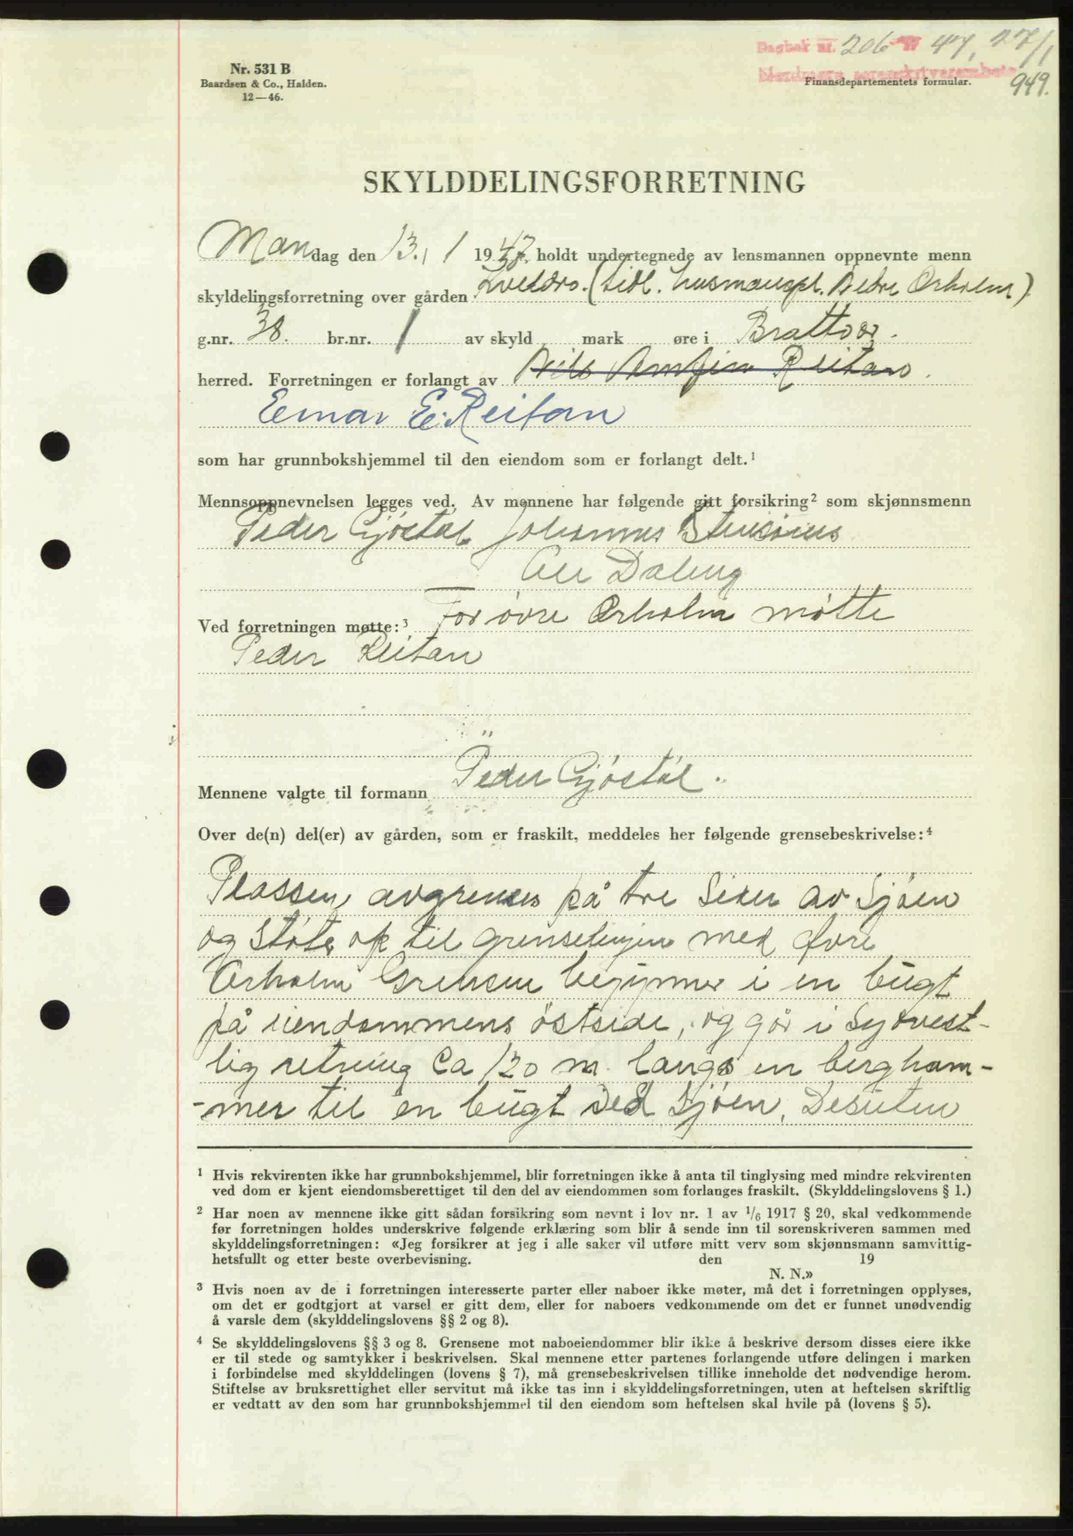 Nr. 531 B
Baardsen & Co., Halden.
12—46.
Dagbok nr. 206 47, 27/1
949.
Finansdepartementets formular.
SKYLDDELINGSFORRETNING
Mandag den 13. / 1 1947. holdt undertegnede av lensmannen oppnevnte menn
skyldelingsforretning over gården Kveldro. (tidl. husmannspl. Nedre Ørholm)
g.nr. 38. br.nr. 1 av skyld mark øre i Brattvær.
herred. Forretningen er forlangt av Nils Arnfinn Reitan.
Einar E. Reitan
som har grunnbokshjemmel til den eiendom som er forlangt delt.¹
Mennsoppnevnelsen legges ved. Av mennene har følgende gitt forsikring² som skjønnsmenn
Peder Gjøstøl Johannes
Ole Daling
Ved forretningen møtte:³ For øvre Ørholm møtte
Peder Reitan
Mennene valgte til formann Peder Gjøstøl.
Over de(n) del(er) av gården, som er fraskilt, meddeles her følgende grensebeskrivelse:⁴
Plassen avgrenses på tre Sider av Sjøen
og støter op til grenselinjen med Øvre
Ørholm Grensen begynner i en bugt
på eiendommens østside, og går i Sydvest-
lig retning Ca 120 m. langs en bergham-
-mer til en bugt ved Sjøen. Desuten
¹ Hvis rekvirenten ikke har grunnbokshjemmel, blir forretningen ikke å anta til tinglysing med mindre rekvirenten
ved dom er kjent eiendomsberettiget til den del av eiendommen som forlanges fraskilt. (Skylddelingslovens § 1.)
² Har noen av mennene ikke gitt sådan forsikring som nevnt i lov nr. 1 av 1/6 1917 § 20, skal vedkommende
før forretningen holdes underskrive følgende erklæring som blir å sende inn til sorenskriveren sammen med
skylddelingsforretningen: «Jeg forsikrer at jeg i alle saker vil utføre mitt verv som skjønnsmann samvittig-
hetsfullt og etter beste overbevisning. den 19
N. N.»
³ Hvis noen av de i forretningen interesserte parter eller naboer ikke møter, må det i forretningen opplyses,
om det er godtgjort at varsel er gitt dem, eller for naboers vedkommende om det er funnet unødvendig
å varsle dem (skylddelingslovens §§ 2 og 8).
⁴ Se skylddelingslovens §§ 3 og 8. Grensene mot naboeiendommer blir ikke å beskrive dersom disses eiere ikke
er til stede og samtykker i beskrivelsen. Skal mennene etter partenes forlangende utføre delingen i marken
i forbindelse med skylddelingen (lovens § 7), må grensebeskrivelsen tillike inneholde det nødvendige herom.
Stiftelse av bruksrettighet eller servitut må ikke tas inn i skylddelingsforretningen, uten at heftelsen skriftlig
er vedtatt av den som har grunnbokshjemmel til den eiendom som heftelsen skal hvile på (lovens § 5).